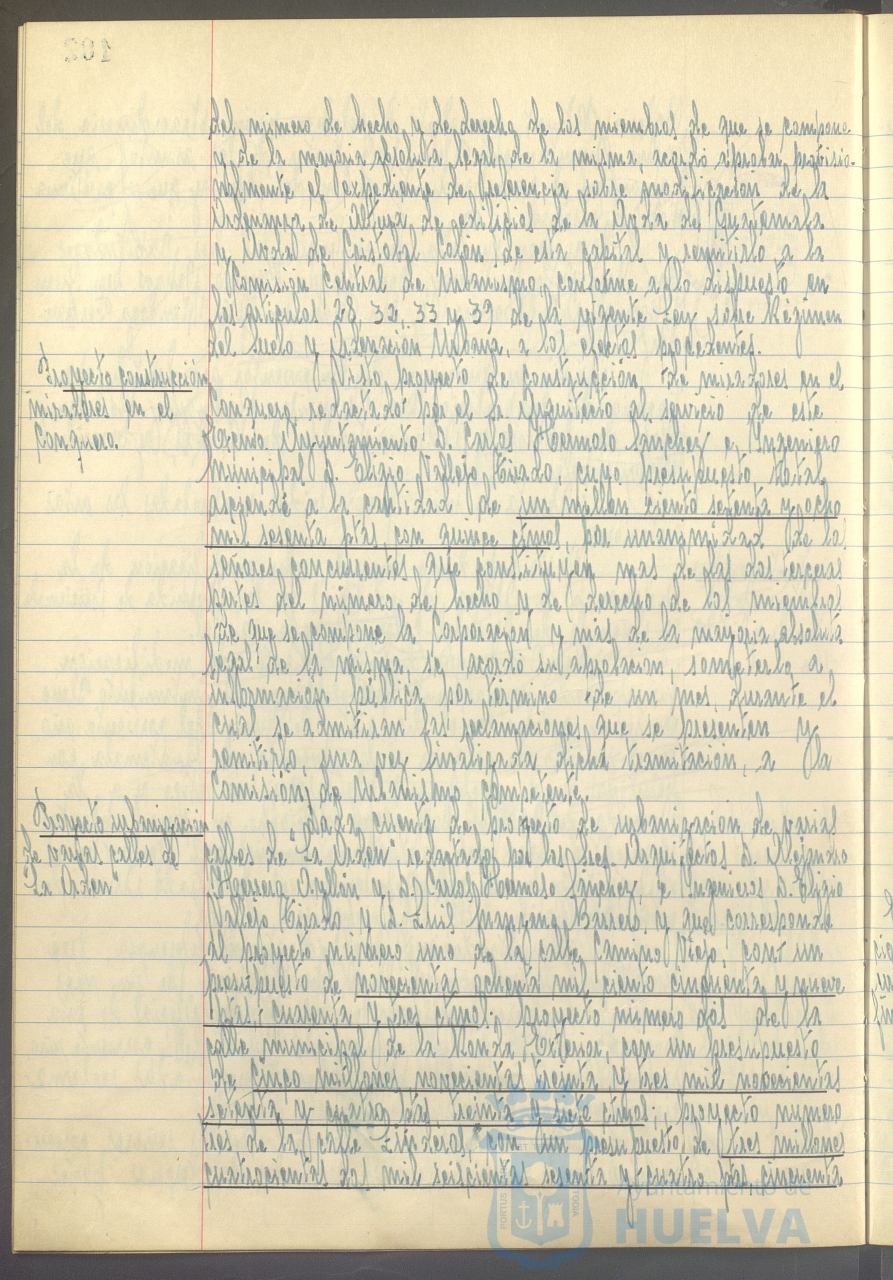 del número de hecho y de derecho de los miembros de que se compone
y de la mayoria absoluta legal de la misma, acordó aprobar provisio-
nalmente el expediente de referencia sobre modificacion de la
Ordenanza de Altura de edificios de la Avda de Guatemala
y Avda de Cristobal Colón de esta capital y remitirlo a la
Comisión Central de Urbanismo, conforme a lo dispuesto en
los articulos 28, 32, 33 y 39 de la vigente Ley sobre Régimen
del Suelo y Ordenación Urbana, a los efectos procedentes.
Proyecto construcción
miradores en el
Conquero.
Visto proyecto de construcción de miradores en el
Conquero, redactado por el Sr Arquitecto al servicio de este
Excmo Ayuntamiento D. Carlos Hermoso Sánchez e Ingeniero
municipal D. Eligio Vallejo Tirado, cuyo presupuesto total
asciende a la cantidad de un millon ciento setenta y ocho
mil sesenta ptas, con quince ctmos, por unanimidad de los
señores concurrentes que constituyen mas de las dos terceras
partes del número de hecho y de derecho de los miembros
de que se compone la Corporacion y más de la mayoria absoluta
legal de la misma, se acordó su aprobacion, someterlo a
información pública por término de un mes, durante el
cual se admitiran las reclamaciones que se presenten y
remitirlo, una vez finalizada dicha tramitación, a la
Comision de Urbanismo competente.
Proyecto urbanizacion
de varias calles de
"La Orden"
Dada cuenta de proyecto de urbanizacion de varias
calles de "La Orden", redactados por los Sres. Arquitectos D. Alejandro
Herrero Ayllón y D. Carlos Hermoso Sánchez, e Ingenieros D. Eligio
Vallejo Tirado y D. Luis Manzano Barrero, y que corresponde
al proyecto número uno de la calle Camino Viejo, con un
presupuesto de novecientas ochenta mil ciento cincuenta y nueve
ptas, cuarenta y tres ctmos; proyecto número dos de la
calle municipal de la Ronda Exterior, con un presupuesto
de cinco millones novecientas treinta y tres mil novecientas
setenta y cuatro ptas, treinta y siete ctmos; proyecto numero
tres de la calle Linderos, con un presupuesto de tres millones
cuatrocientas dos mil seiscientas sesenta y cuatro ptas, cincuenta
Ayuntamiento de
HUELVA